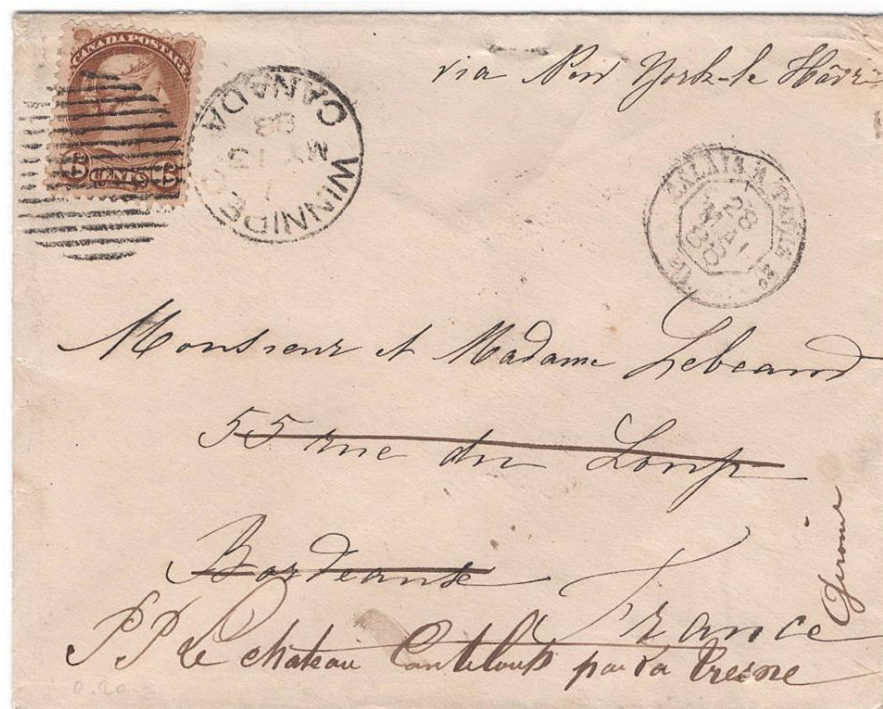 CANADA POSTAGE
6 CENTS 6
WINNIPEG
CANADA
1
MY 13
88
via New York-le Hâvre
CALAIS A PARIS 2º
28
MAI
88
Monsieur et Madame Lebeaud
55 rue du Loup
Bordeaux
France
Gironde
P P Le chateau Canteloup par La Tresne